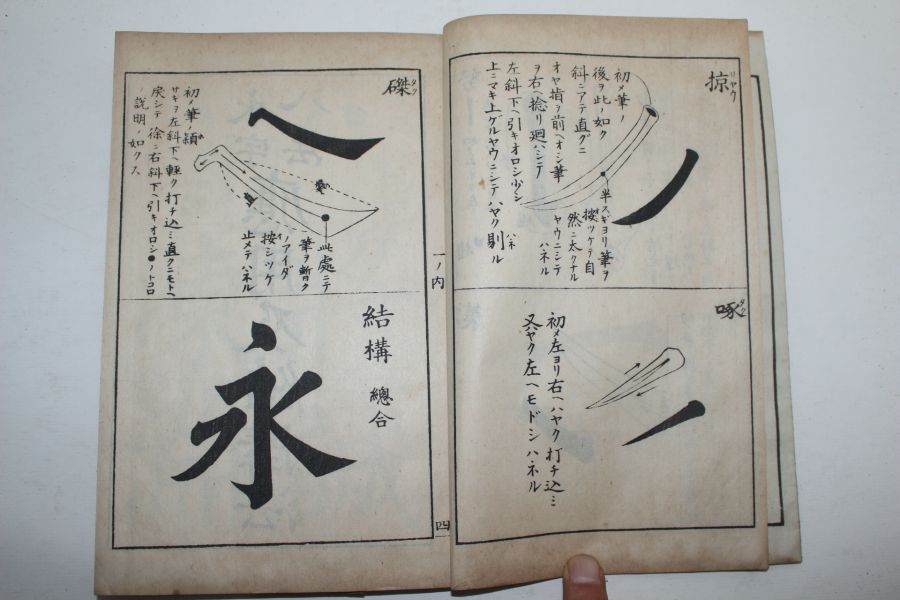 掠
リヤウ
初メ筆ノ
後ヲ此ノ如ク
斜ニアテ直グニ
オヤ指ヲ前ヘオシ筆
ヲ右ヘ捻リ廻ハシテ
左斜下ヘ引キオロシ少シ
上ニマキ上ゲルヤウニシテハヤク剔ル
ハネ
半スギヨリ筆ヲ
按ツケテ自
然ニ太クナル
ヤウニシテ
ハネル
啄
タク
初メ左ヨリ右ヘハヤク打チ込ミ
又ハヤク左ヘモドシハネル
磔
タク
初メ筆ノ穎
サキヲ左斜下ヘ軽ク打チ込ミ直グニモトヘ
戻シテ徐ニ右斜下ヘ引キオロシ●ノトコロ
ノ説明ノ如クス
此處ニテ
筆ヲ暫ク
ノアイダ
按シツケ
止メテハネル
結構 總合
永
一ノ内
四